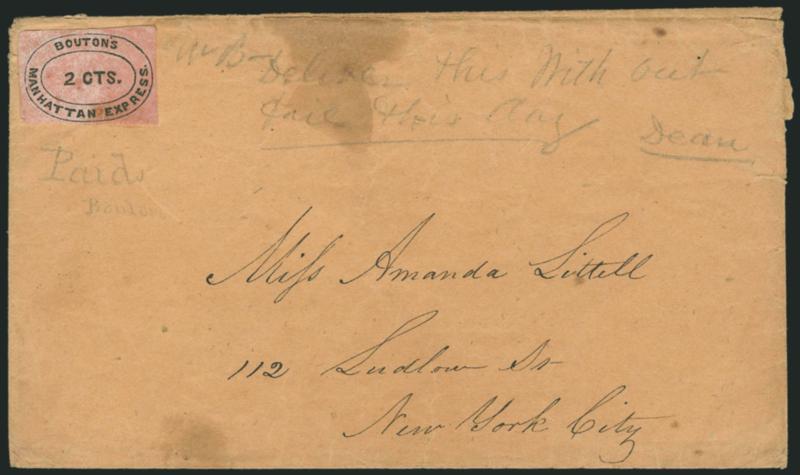 BOUTON'S
2 CTS.
MANHATTAN EXPRESS.
Mr B Deliver this With out
fail this day
Dean
Paid
Bouton
Miss Amanda Littell
112 Ludlow St
New York City